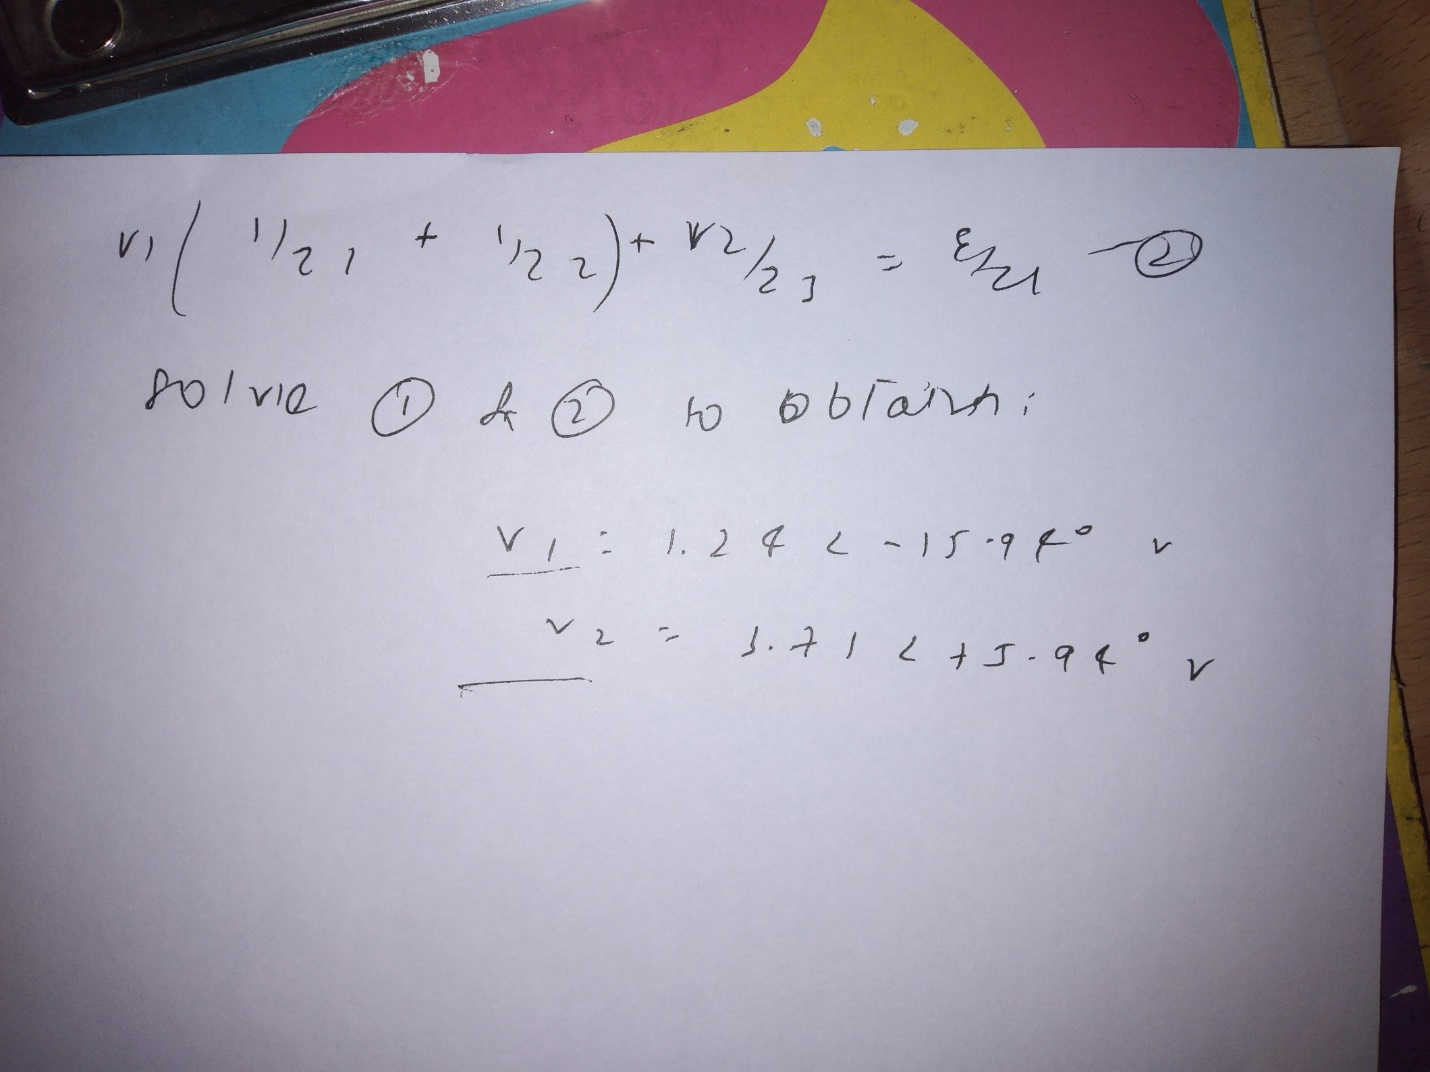 V1 ( 1/Z1 + 1/Z2 ) + V2/Z3 = E/Z1 — ②
solve ① & ② to obtain:
V1 = 1.24 < -15.94° V
V2 = 3.71 < +5.94° V